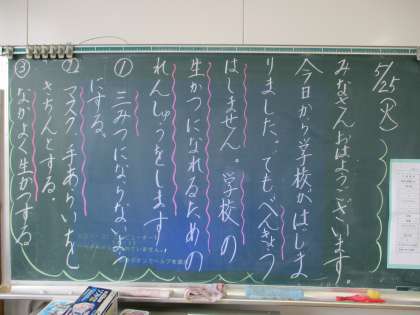 5/25(火)
みなさんおはようございます。
今日から学校がはじま
りました。でもべんきょう
はしません。学校の
生かつになれるための
れんしゅうをします。
① 三みつにならないよう
にする。
② マスク、手あらいをし
きちんとする。
③ なかよく生かつする